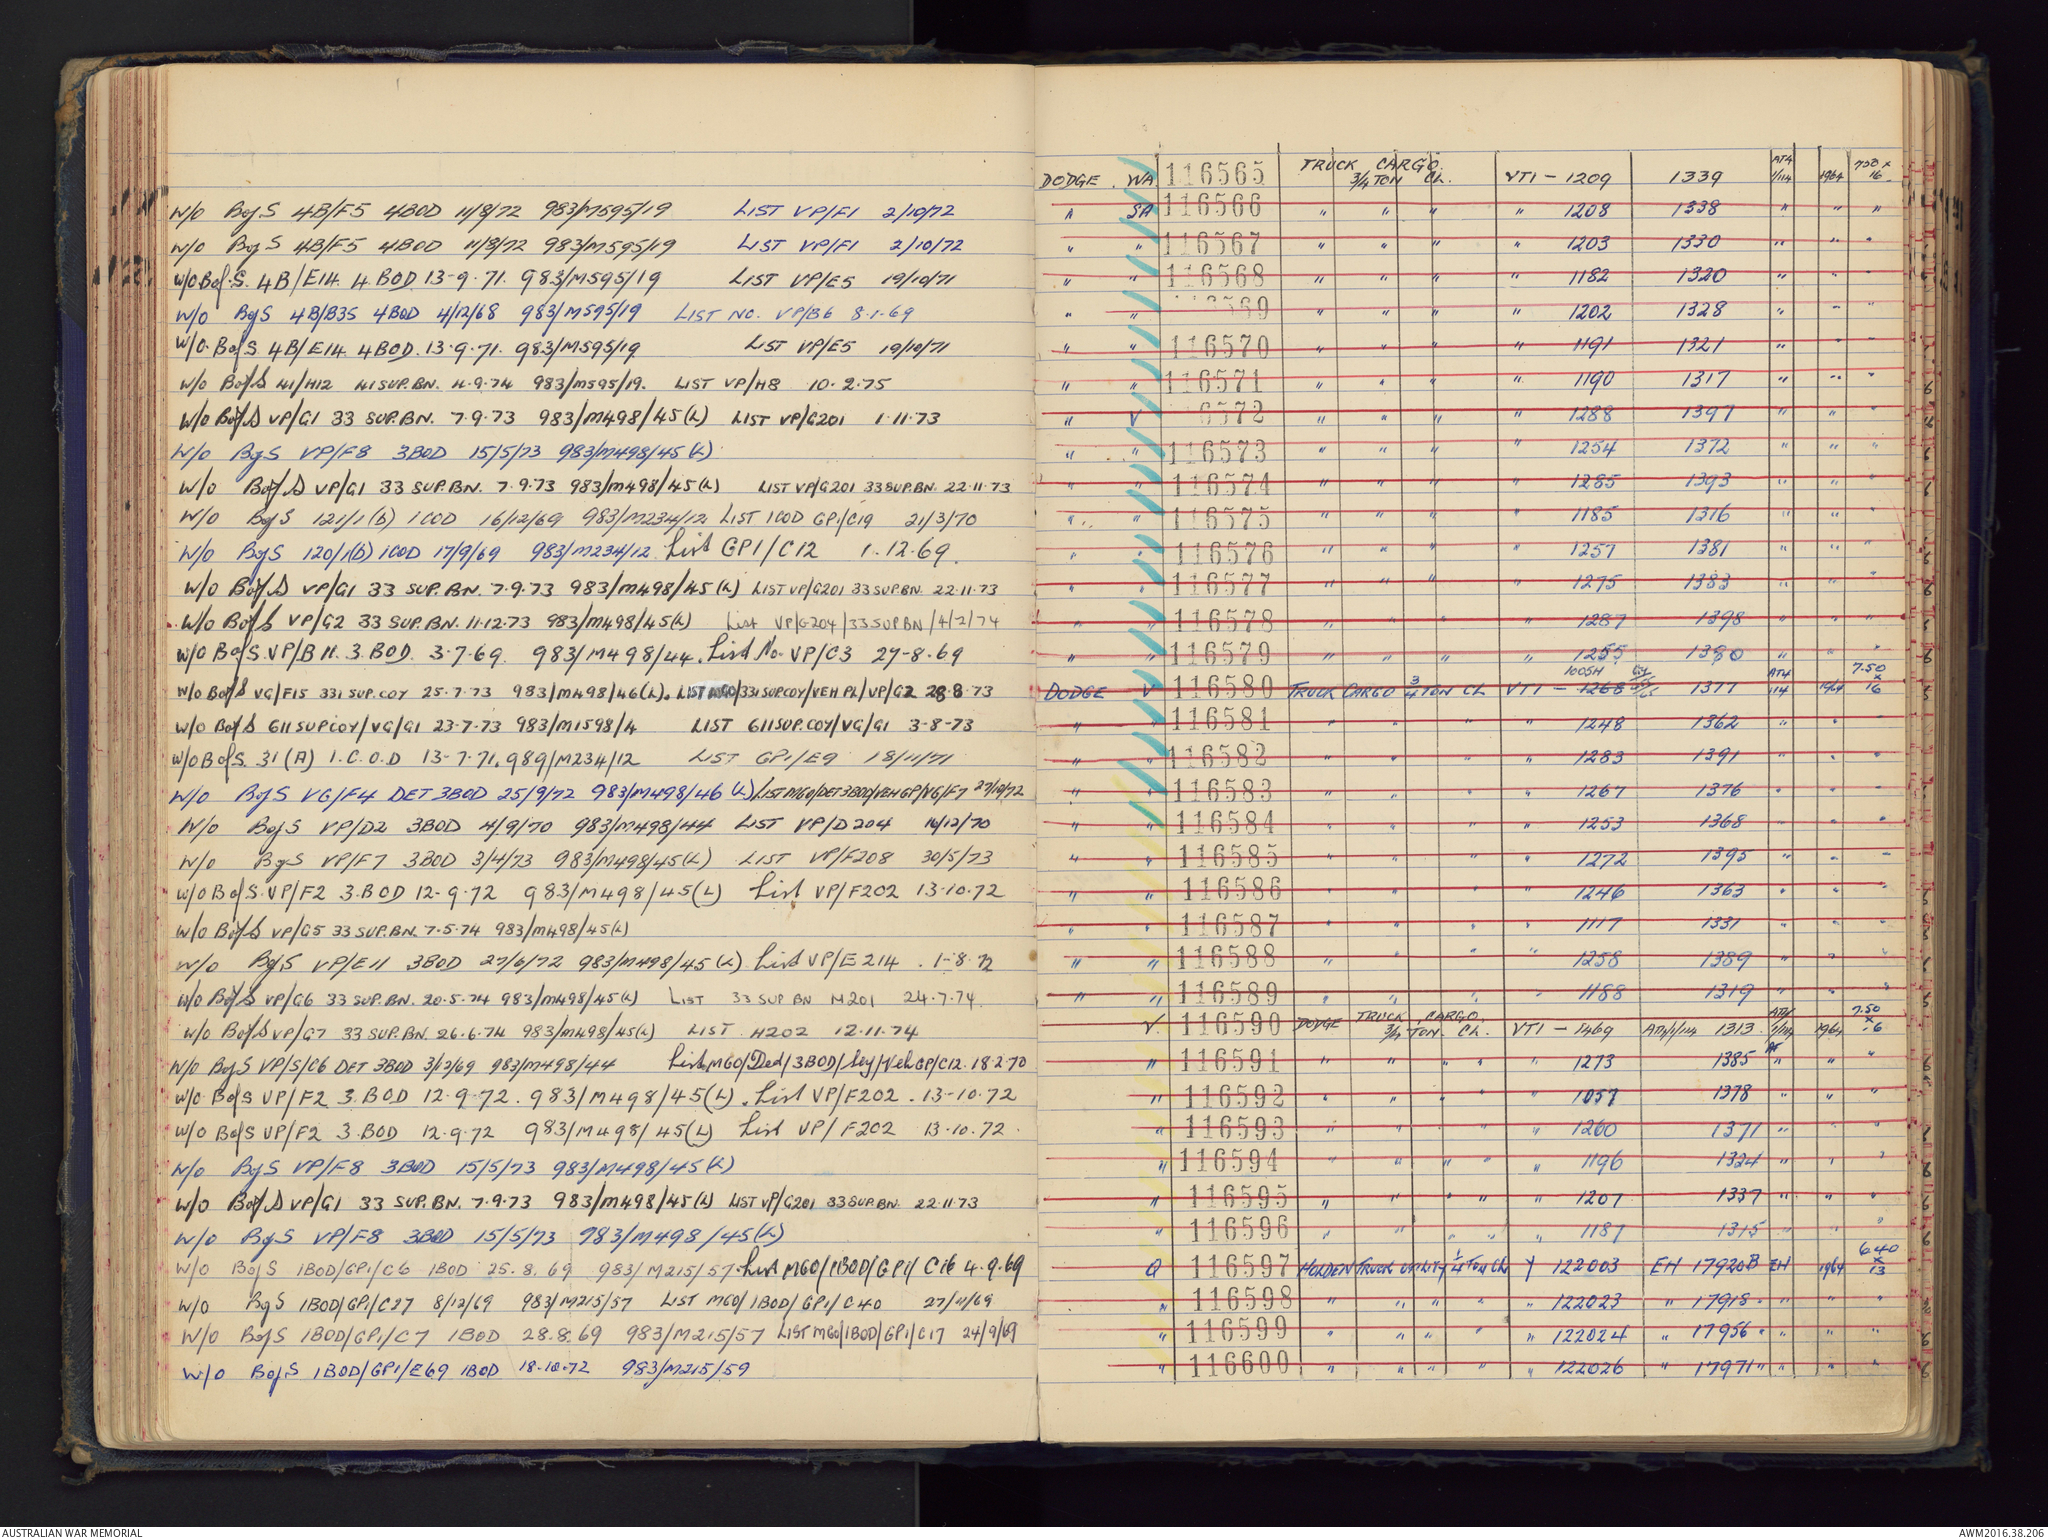 W/O BofS 4B/F5 4BOD 11/8/72 983/M595/19 LIST VP/F1 2/10/72
W/O BofS 4B/F5 4BOD 11/8/72 983/M595/19 LIST VP/F1 2/10/72
W/O.BofS. 4B/E14. 4.BOD. 13-9.71. 983/M595/19 LIST VP/E5 19/10/71
W/O BofS 4B/B35 4BOD 4/12/68 983/M595/19 LIST NO. VP/B6 8.1.69
W/O. BofS. 4B/E14. 4BOD. 13.9.71. 983/M595/19 LIST VP/E5 19/10/71
W/O BofS 41/H12 41 SUP. BN. 4.9.74 983/M595/19. LIST VP/H8 10.2.75
W/O BofS VP/G1 33 SUP. BN. 7.9.73 983/M498/45(L) LIST VP/G201 1.11.73
W/O BofS VP/F8 3BOD 15/5/73 983/M498/45(L)
W/O BofS VP/G1 33 SUP. BN. 7.9.73 983/M498/45(L) LIST VP/G201 33 SUP. BN. 22.11.73
W/O BofS 121/1(b) 1COD 16/12/69 983/M234/12 LIST 1COD GP1/C19 21/3/70
W/O BofS 120/1(b) 1COD 17/9/69 983/M234/12. List GP1/C12 1.12.69.
W/O BofS VP/G1 33 SUP. BN. 7.9.73 983/M498/45(L) LIST VP/G201 33 SUP.BN. 22.11.73
W/O BofS VP/G2 33 SUP. BN. 11.12.73 983/M498/45(L) List VP/G204/33 SUP BN/4/2/74
W/O BofS. VP/B11. 3.BOD. 3.7.69. 983/M498/44. List No. VP/C3 27-8.69
W/O BofS VG/F15 331 SUP. COY 25.7.73 983/M498/46(L). LIST MGO/331 SUPCOY/VEH PL/VP/G2 28.8.73
W/O BofS 611 SUPCOY/VG/G1 23.7.73 983/M1598/4 LIST 611 SUP. COY/VG/G1 3-8-73
W/O BofS. 31(A) 1.C.O.D 13-7.71. 989/M234/12 LIST GP1/E9 18/11/71
W/O BofS VG/F4 DET 3BOD 25/9/72 983/M498/46(L) LIST MGO/DET 3BOD/VEH GP/VG/F7 27/10/72
W/O BofS VP/D2 3BOD 4/9/70 983/M498/44 LIST VP/D204 16/12/70
W/O BofS VP/F7 3BOD 3/4/73 983/M498/45(L) LIST VP/F208 30/5/73
W/O BofS. VP/F2 3.BOD 12-9.72 983/M498/45(L) List VP/F202 13.10.72
W/O BofS VP/G5 33 SUP. BN. 7.5.74 983/M498/45(L)
W/O BofS VP/E11 3BOD 27/6/72 983/M498/45(L). List VP/E214. 1-8.72
W/O BofS VP/G6 33 SUP. BN. 20.5.74 983/M498/45(L) LIST 33 SUP BN H201 24.7.74.
W/O BofS VP/G7 33 SUP. BN. 26.6.74 983/M498/45(L) LIST H202 12.11.74
W/O BofS VP/S/C6 DET 3BOD 3/12/69 983/M498/44 List MGO/Ded/3BOD/Sey/Veh GP/C12. 18.2.70
W/O. BofS VP/F2 3.BOD 12.9.72. 983/M498/45(L). List VP/F202. 13-10.72
W/O BofS VP/F2 3.BOD 12.9.72 983/M498/45(L) List VP/F202 13.10.72.
W/O BofS VP/F8 3BOD 15/5/73 983/M498/45(L)
W/O BofS VP/G1 33 SUP. BN. 7.9.73 983/M498/45(L) LIST VP/G201 33 SUP. BN. 22.11.73
W/O BofS VP/F8 3BOD 15/5/73 983/M498/45(L)
W/O BofS 1BOD/GP1/C6 1BOD 25.8.69 983/M215/57. List MGO/1BOD/GP1/C16 4.9.69
W/O BofS 1BOD/GP1/C27 8/12/69 983/M215/57 LIST MGO/1BOD/GP1/C40 27/11/69
W/O BofS 1BOD/GP1/C7 1BOD 28.8.69 983/M215/57 LIST MGO/1BOD/GP1/C17 24/9/69
W/O BofS 1BOD/GP1/E69 1BOD 18.10.72 983/M215/59
DODGE. WA 116565 TRUCK CARGO 3/4 TON CL. VT1 - 1209 1339 AT4 1/114 1964 7.50 x 16
" SA 116566 " " " " 1208 1338 " " "
" " 116567 " " " " 1203 1330 " " "
" " 116568 " " " " 1182 1320 " " "
" " 116569 " " " " 1202 1328 " " "
" " 116570 " " " " 1191 1321 " " "
" " 116571 " " " " 1190 1317 " " "
" V 116572 " " " " 1288 1397 " " "
" " 116573 " " " " 1254 1372 " " "
" " 116574 " " " " 1285 1393 " " "
" " 116575 " " " " 1185 1316 " " "
" " 116576 " " " " 1257 1381 " " "
" " 116577 " " " " 1275 1383 " " "
" " 116578 " " " " 1287 1398 " " "
" " 116579 " " " " 1255 1380 " " "
DODGE V 116580 TRUCK CARGO 3/4 TON CL VT1 - 1268 1005H 1377 AT4 114 1964 7.50 x 16
" " 116581 " " " " 1248 1362 " " "
" " 116582 " " " " 1283 1391 " " "
" " 116583 " " " " 1267 1376 " " "
" " 116584 " " " " 1253 1368 " " "
" " 116585 " " " " 1272 1395 " " "
" " 116586 " " " " 1246 1363 " " "
" " 116587 " " " " 1117 1331 " " "
" " 116588 " " " " 1258 1389 " " "
" " 116589 " " " " 1188 1319 " " "
V. 116590 DODGE TRUCK CARGO 3/4 TON CL. VT1 - 1469 AT4/1/114 1313. AT4 1/114 1964 7.50 x 16
" 116591 " " " " " 1273 1385 AT " " "
" 116592 " " " " " 1057 1378 " " "
" 116593 " " " " " 1260 1371 " " "
" 116594 " " " " " 1196 1324 " " "
" 116595 " " " " " 1207 1337 " " "
" 116596 " " " " " 1187 1315 " " "
Q 116597 HOLDEN TRUCK UTILITY 1/4 TON CL Y 122003 EH 17920B EH 1964 6.40 x 13
" 116598 " " " " " " 122023 " 17918 " " " "
" 116599 " " " " " " 122024 " 17956 " " " "
" 116600 " " " " " " 122026 " 17971 " " " "
AUSTRALIAN WAR MEMORIAL
AWM2016.38.206